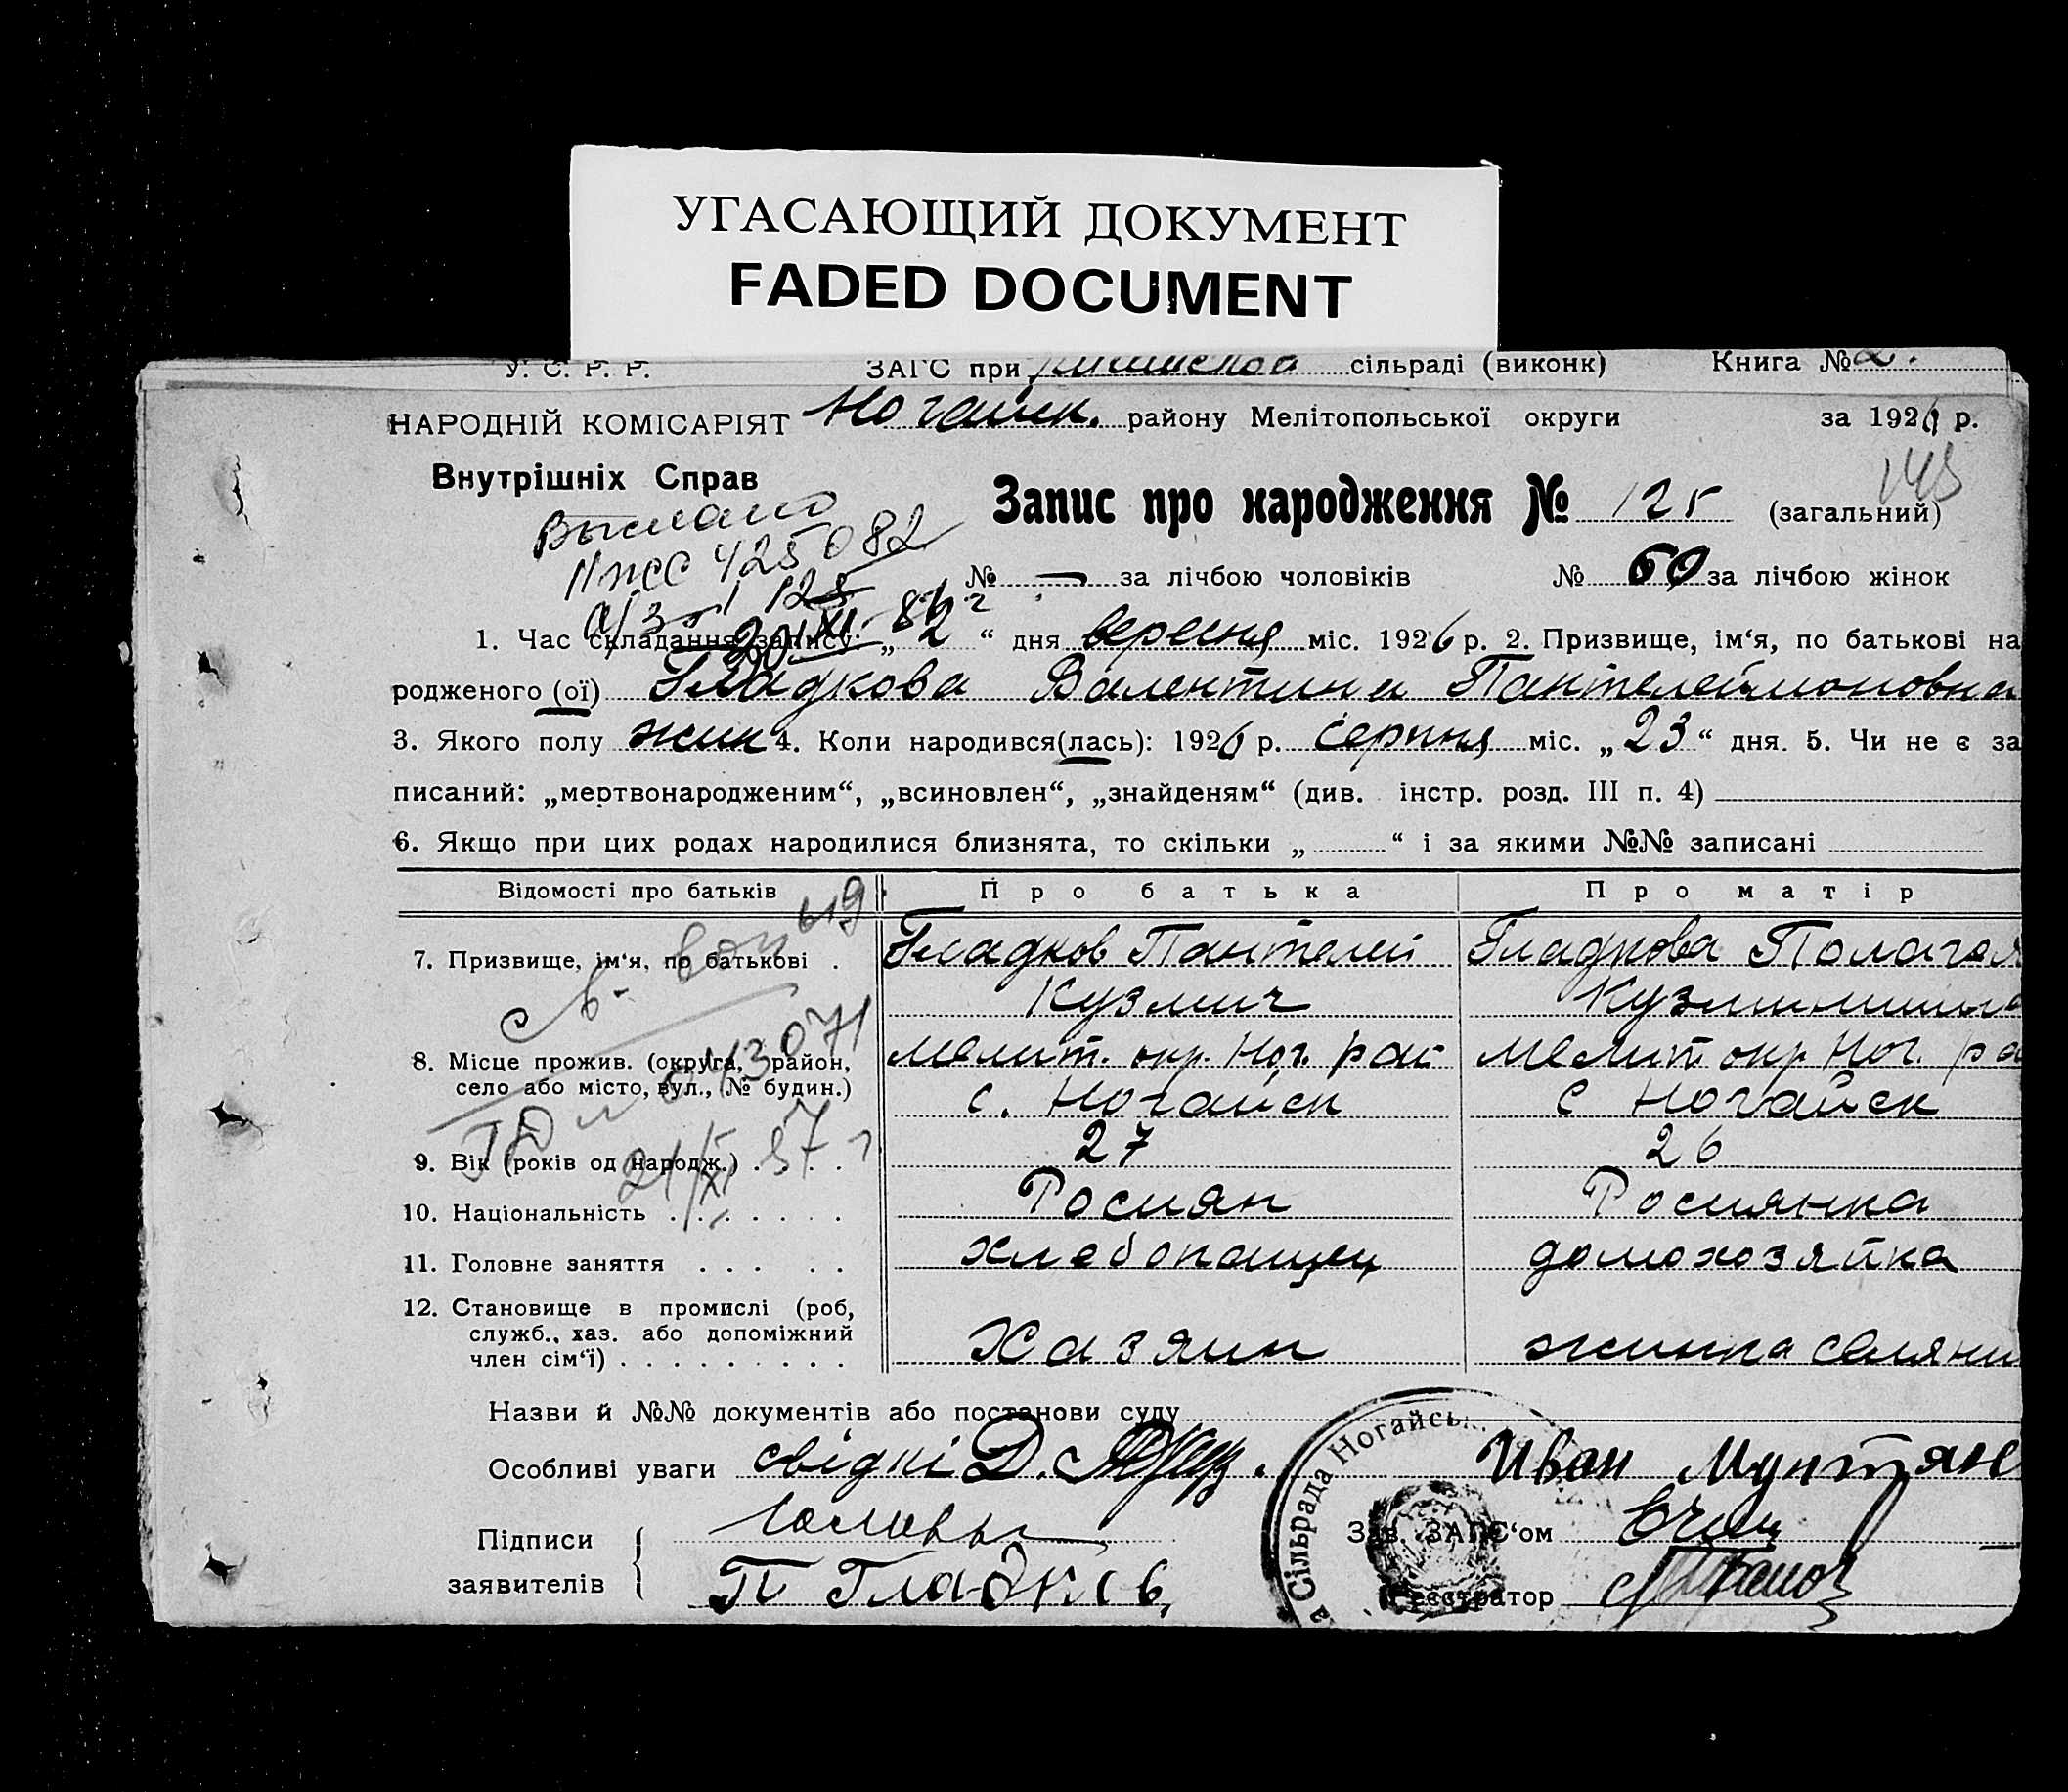 УГАСАЮЩИЙ ДОКУМЕНТ
FADED DOCUMENT
У. С. Р. Р. ЗАГС при сільраді (виконк) Книга № 2.
НАРОДНІЙ КОМІСАРІЯТ Ногайск. району Мелітопольської округи за 1926 р.
Внутрішніх Справ
145
Запис про народження № 125 (загальний)
Выслано
425082
№ — за лічбою чоловіків № 60 за лічбою жінок
а/з 125
20 XI 86 г
1. Час складання запису: „ 2 “ дня вересня міс. 1926 р. 2. Призвище, ім‘я, по батькові на
родженого (ої) Гладкова Валентина Пантелеймоновна
3. Якого полу жин 4. Коли народився(лась): 1926 р. серпня міс. „ 23 “ дня. 5. Чи не є за
писаний: „мертвонародженим“, „всиновлен“, „знайденям“ (див. інстр. розд. III п. 4)
6. Якщо при цих родах народилися близнята, то скільки „ “ і за якими №№ записані
Відомості про батьків Про батька Про матір
7. Призвище, ім‘я, по батькові . Гладков Пантелей Гладкова Полагея
Кузмич
8. Місце прожив. (округа, район, Мелит. окр. Ног. рай Мелит окр Ног. ра
село або місто, вул., № будин.) с. Ногайск с Ногайск
9. Вік (років од народж.) . . . . 27 26
10. Національність . . . . . . . Росиян Росиянка
11. Головне заняття . . . . . хлебопашец домохозяйка
12. Становище в промислі (роб,
служб., хаз. або допоміжний
член сім‘ї) . . . . . . . . . . Хазяин жинка селяни
Назви й №№ документів або постанови суду
Особливі уваги свідкі Д. Иван Мунтян
Підписи
заявителів П Гладков
Зав. ЗАГС‘ом
Реєстратор
а Сільрада Ногайсь